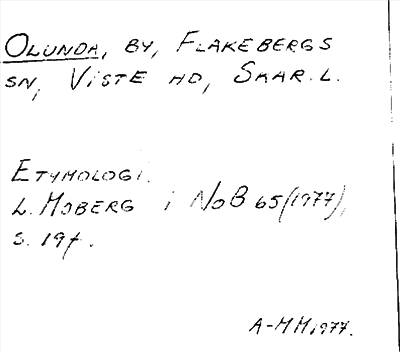 OLUNDA, BY, FLAKEBERGS
SN, VISTE HD, SKAR. L.
ETYMOLOGI.
L. MOBERG i NoB 65 (1977),
S. 19f.
A-MM 1977.